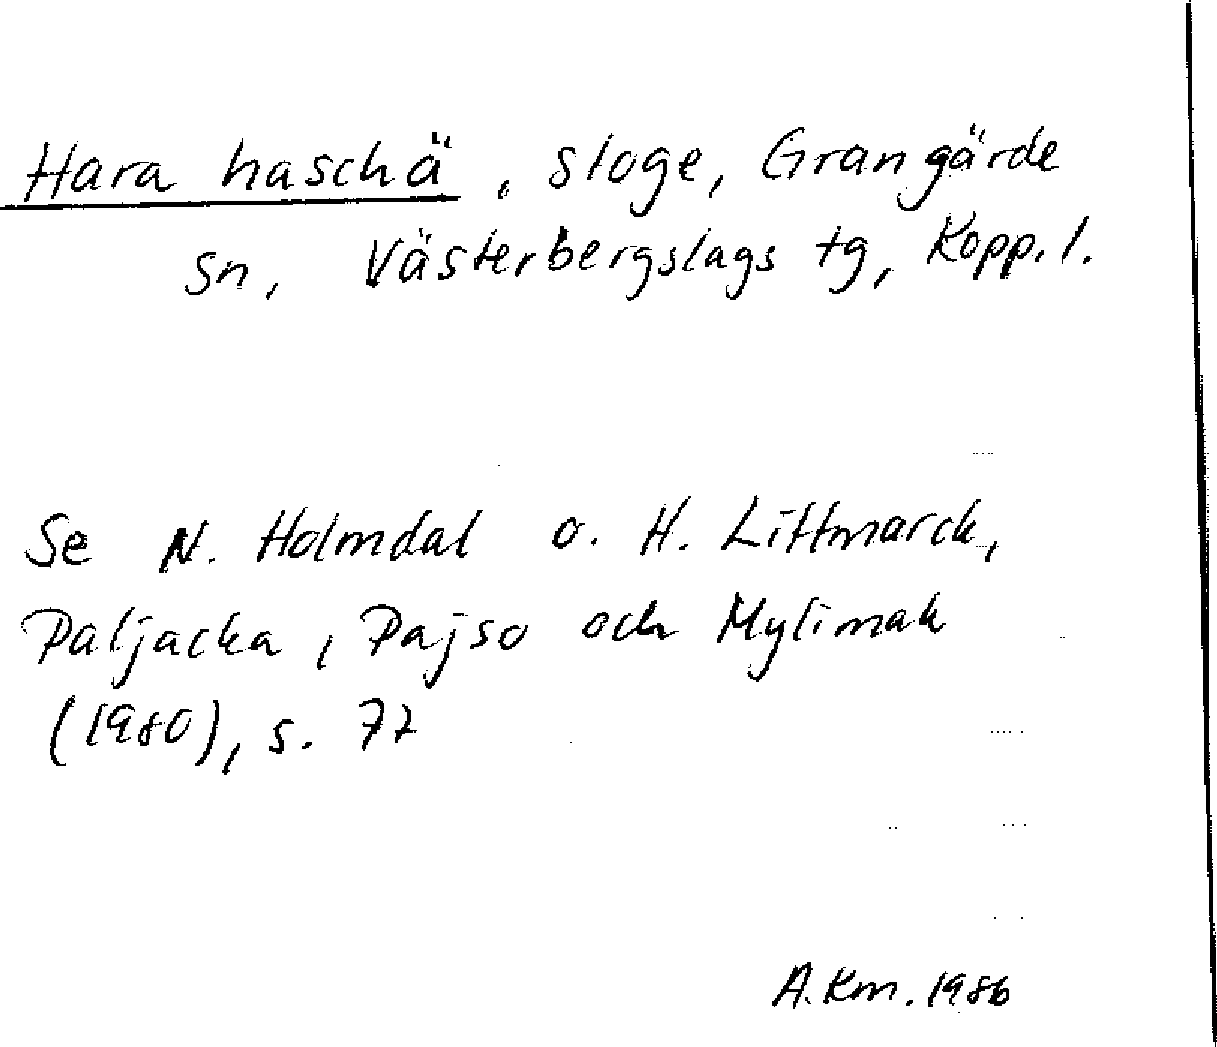 Hara haschä, sloge, Grangärde
sn, Västerbergslags tg, Kopp. l.
Se N. Holmdal o. H. Littmarck,
Paljacka, Pajso och Mylimak
(1980), s. 72
A. Km. 1986